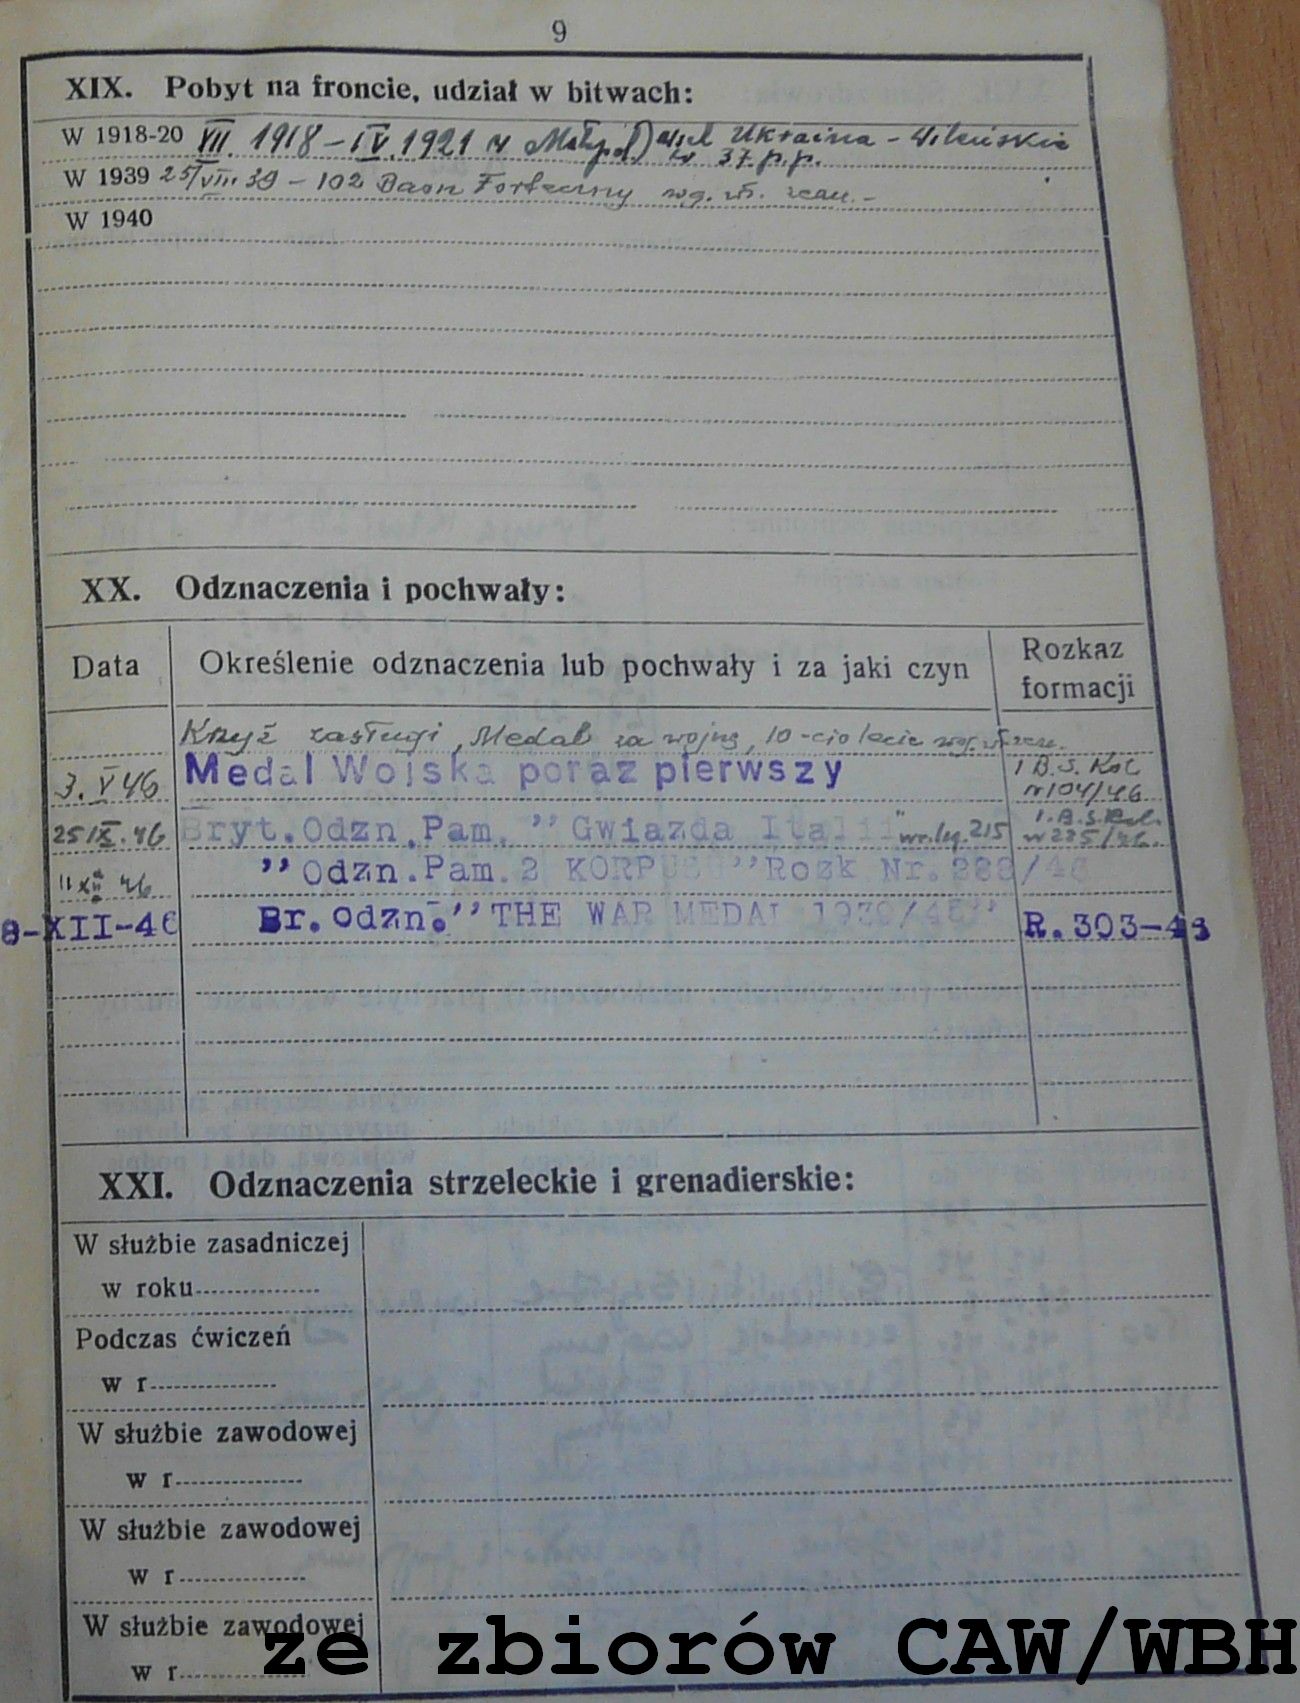 9
XIX. Pobyt na froncie, udział w bitwach:
W 1918-20 VII. 1918 – IV. 1921 Ukraina - Wileńskie
w 37. p.p.
W 1939 25/VIII 39 – 102 Baon Forteczny wg. wł. zezn. -
W 1940
XX. Odznaczenia i pochwały:
Data Określenie odznaczenia lub pochwały i za jaki czyn Rozkaz formacji
Krzyż zasługi, Medal za wojnę, 10-cio lecie wg. wł. zezn.
3. V 46 Medal Wojska poraz pierwszy 1 B.S. Roz
nr 104/46
25 IX. 46 Bryt. Odzn. Pam. "Gwiazda Italii" nr. leg. 215 1. B.S. Roz.
nr 225/46.
11 XI 46 " Odzn. Pam. 2 KORPUSU" Rozk Nr. 283/46
8-XII-46 Br. odzn. "THE WAR MEDAL 1939/45" R. 303-46
XXI. Odznaczenia strzeleckie i grenadierskie:
W służbie zasadniczej
w roku
Podczas ćwiczeń
w r
W służbie zawodowej
w r
W służbie zawodowej
w r
W służbie zawodowej
w r
ze zbiorów CAW/WBH